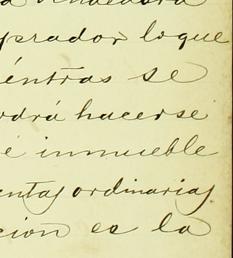 prador loque
iéntras se
odrá hacerse
é inmueble
entas ordinarias
ción es la